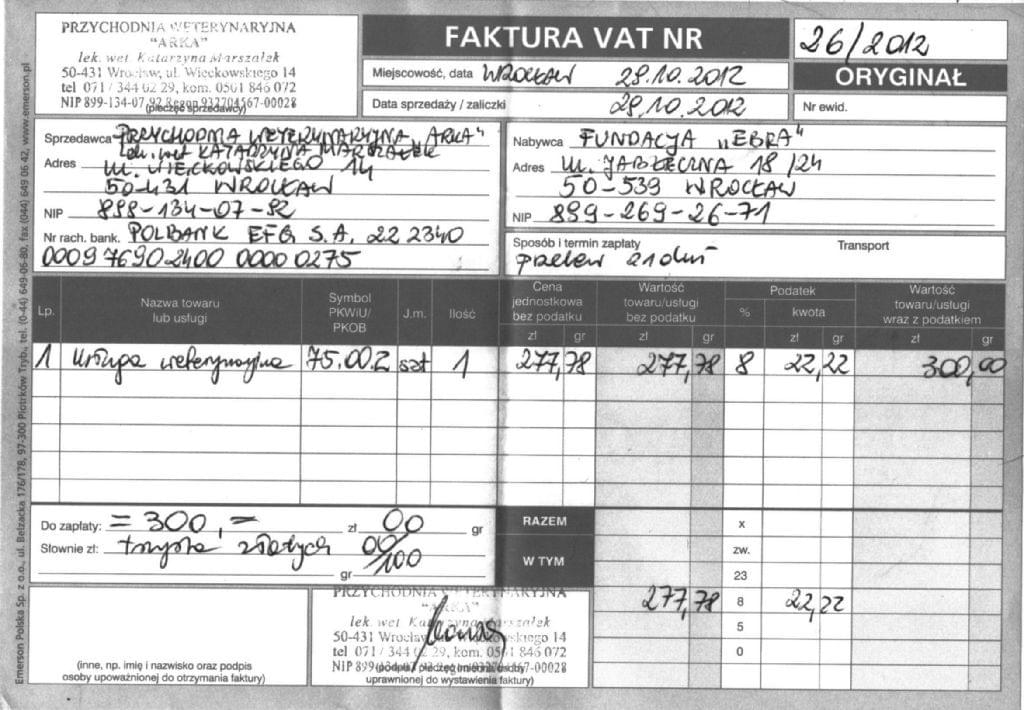 PRZYCHODNIA WETERYNARYJNA
"ARKA"
lek. wet. Katarzyna Marszałek
50-431 Wrocław, ul. Więckowskiego 14
tel 071 / 344 02 29, kom. 0501 846 072
NIP 899-134-07-92 Regon 932704567-00028
(pieczęć sprzedawcy)
FAKTURA VAT NR
26/2012
ORYGINAŁ
Miejscowość, data WROCŁAW 29.10.2012
Data sprzedaży / zaliczki 29.10.2012
Nr ewid.
Sprzedawca PRZYCHODNIA WETERYNARYJNA „ARKA"
lek. wet KATARZYNA MARSZAŁEK
Adres ul. WIĘCKOWSKIEGO 14
50-431 WROCŁAW
NIP 899-134-07-92
Nr rach. bank. POLBANK EFG S.A. 22 2340
0009 7690 2400 0000 0275
Nabywca FUNDACJA „EBRA"
Adres ul. JABŁECZNA 18/24
50-539 WROCŁAW
NIP 899-269-26-71
Sposób i termin zapłaty Transport
przelew 21 dni
Lp. Nazwa towaru lub usługi Symbol PKWiU/ PKOB J.m. Ilość Cena jednostkowa bez podatku Wartość towaru/usługi bez podatku Podatek Wartość towaru/usługi wraz z podatkiem
% kwota
zł gr zł gr zł gr zł gr
1 usługa weterynaryjna 75.00.Z szt 1 277,78 277,78 8 22,22 300,00
Do zapłaty: = 300,- zł 00 gr
Słownie zł: trzysta złotych 00/100
gr
RAZEM x
W TYM zw.
23
277,78 8 22,22
5
0
(inne, np. imię i nazwisko oraz podpis
osoby upoważnionej do otrzymania faktury)
PRZYCHODNIA WETERYNARYJNA
"ARKA"
lek. wet. Katarzyna Marszałek
50-431 Wrocław, ul. Więckowskiego 14
tel 071 / 344 02 29, kom. 0501 846 072
NIP 899-134-07-92 Regon 932704567-00028
uprawnionej do wystawienia faktury)
Emerson Polska Sp. z o.o., ul. Bełzacka 176/178, 97-300 Piotrków Tryb., tel. (0-44) 649-06-80, fax (044) 649 06 42, www.emerson.pl